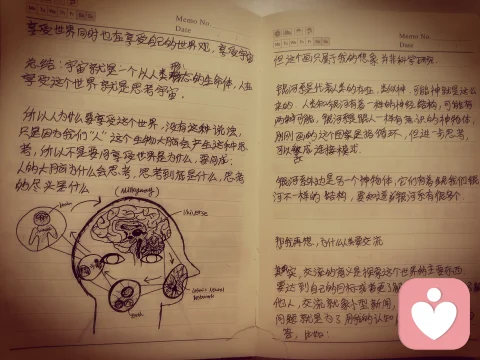 Memo No.
Date
享受世界同时也在享受自己的世界观，享受宇宙
总结：宇宙就是一个以人类形态的生命体，人在
享受这个世界就是思考宇宙。
所以人为什么要享受这个世界，没有这种说法，
只是因为我们“人”这个生物大脑会产生这种思
考，所以不是要问享受世界是为什么，要问成：
人的大脑为什么会思考，思考到底是什么，思考
的意义是什么
(Milkyway)
Universe
Human
Cosmic Neural Network
Earth
Memo No.
Date
但这个画只属于我的想象，并非科学理论
银河系是代表人类的存在，类似神，可能神就是这么
来的，人类和银河有着一样的神经结构，可能有
两种可能，银河系跟人一样有意识的神物体，
刚刚画的这个图案是指循环，但进一步思考，
可以是后连接模式
银河系外边是另一个神物体，它们有着跟我们银
河不一样的结构，要知道银河系有很多个.
想我再想，为什么人类要交流
其实，交流的意义是探索这个世界的主要东西
要达到自己的目标或者更了解
他人，交流就象小型新闻，
问题就是为了用我的认知
查，比如：